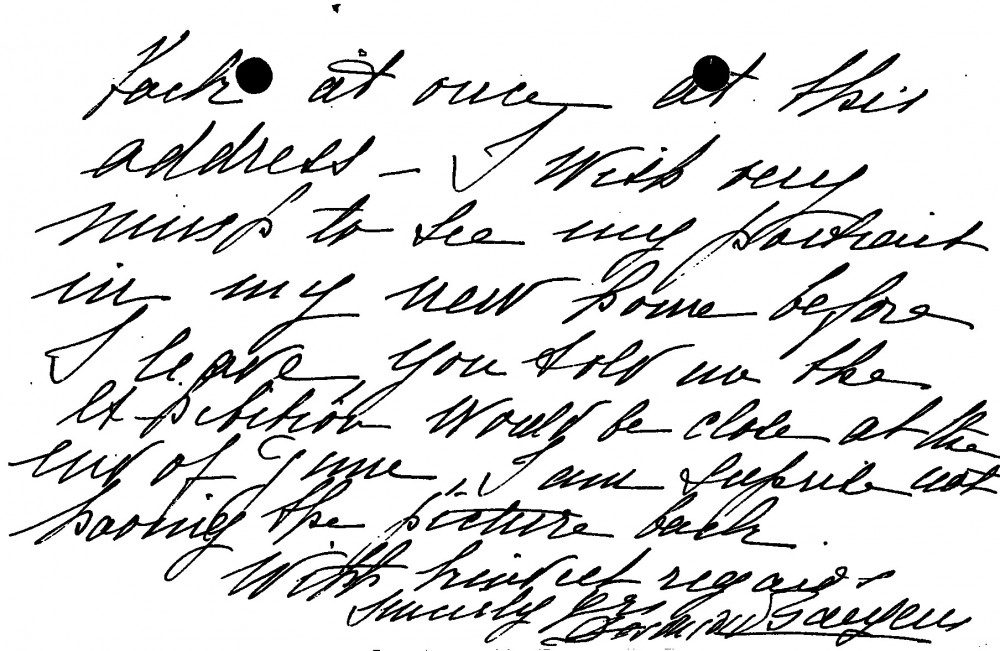 back at once at this
address – I wish very
much to see my portrait
in my new home before
I leave, you told me the
Exhibition would be close at the
end of June, I am suprise not
having the picture back.
With kindest regards
sincerely yrs